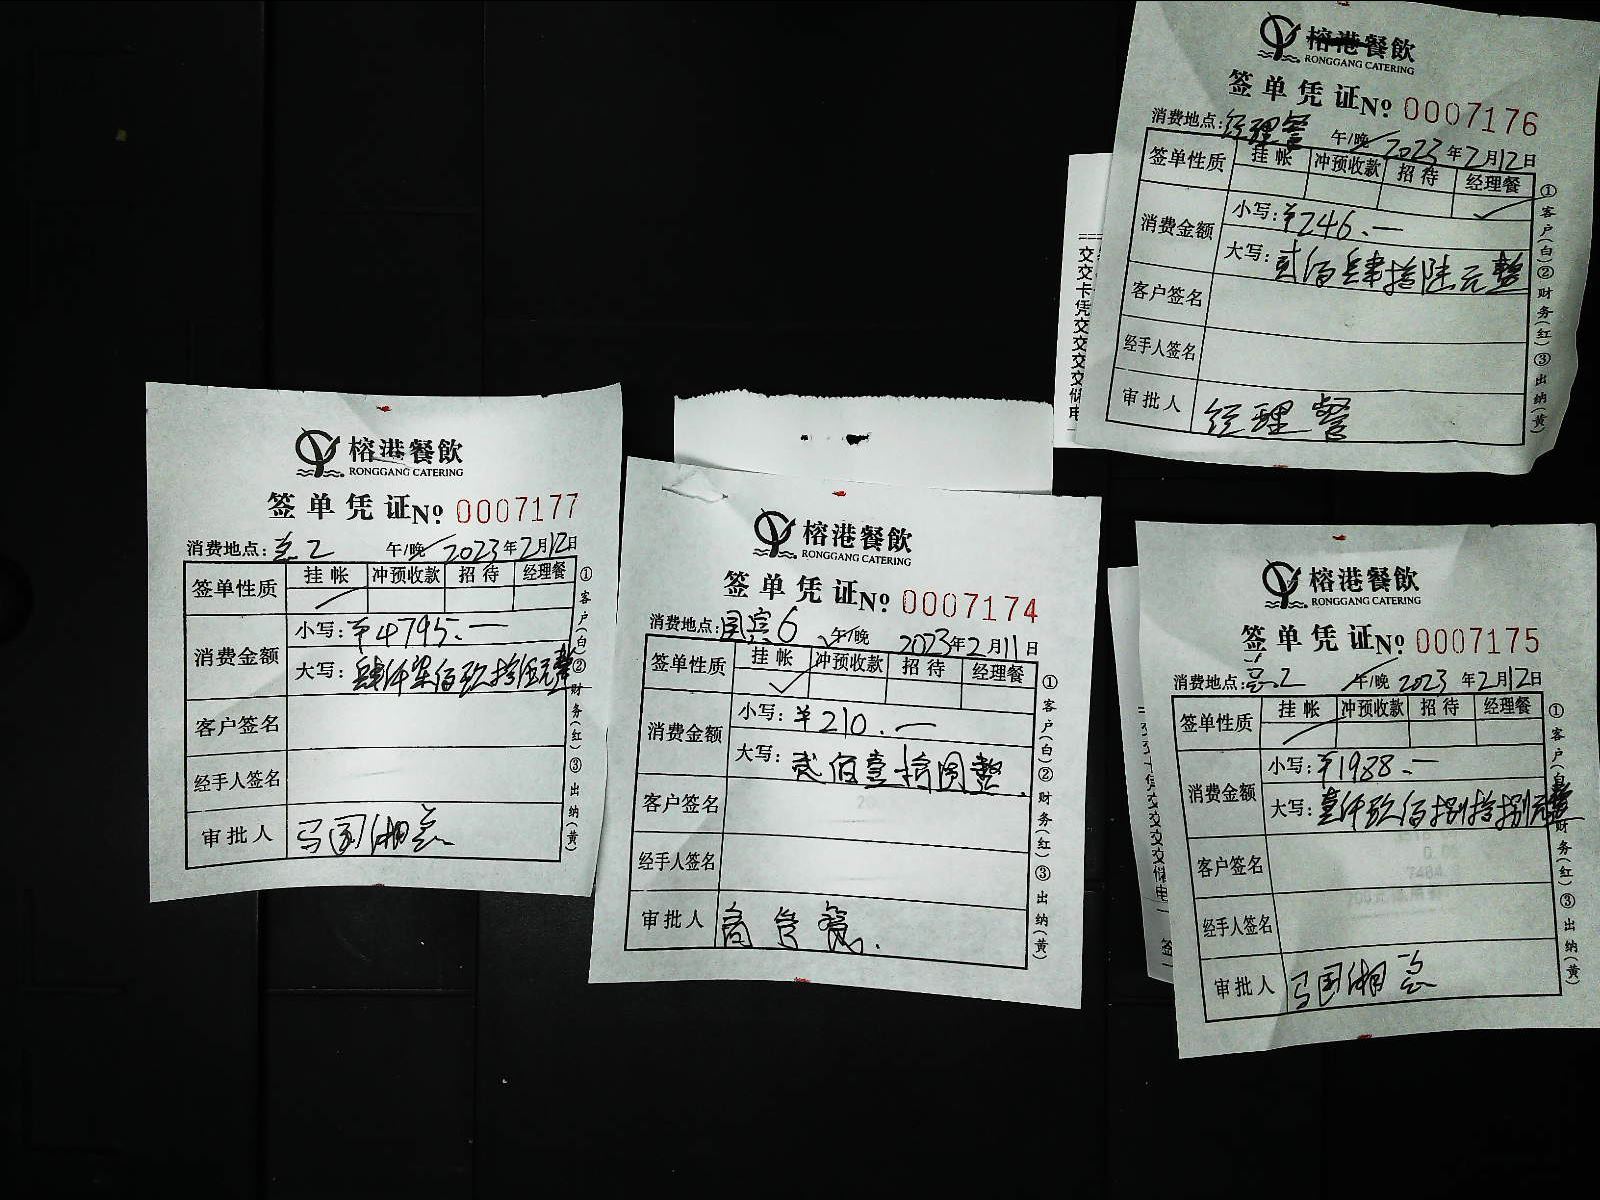 榕港餐飲
RONGGANG CATERING
签单凭证№ 0007176
消费地点:经理餐 午/晚 2023年2月12日
签单性质 挂帐 冲预收款 招待 经理餐
消费金额 小写:¥246.一
大写:贰佰肆拾陆元整
客户签名
经手人签名
审批人 经理餐
①客户(白)②财务(红)③出纳(黄)
榕港餐飲
RONGGANG CATERING
签单凭证№ 0007177
消费地点: 2 午/晚 2023年2月12日
签单性质 挂帐 冲预收款 招待 经理餐
消费金额 小写:¥4795.一
大写:肆仟柒佰玖拾伍元整
客户签名
经手人签名
审批人 马国湘总
①客户(白)②财务(红)③出纳(黄)
榕港餐飲
RONGGANG CATERING
签单凭证№ 0007174
消费地点:国宾6 午/晚 2023年2月11日
签单性质 挂帐 冲预收款 招待 经理餐
消费金额 小写:¥210.一
大写:贰佰壹拾圆整
客户签名
经手人签名
审批人
①客户(白)②财务(红)③出纳(黄)
榕港餐飲
RONGGANG CATERING
签单凭证№ 0007175
消费地点:总2 午/晚 2023年2月12日
签单性质 挂帐 冲预收款 招待 经理餐
消费金额 小写:¥1988.一
大写:壹仟玖佰捌拾捌元整
客户签名
经手人签名
审批人 马国湘总
①客户(白)②财务(红)③出纳(黄)
交
交
卡
凭
交
交
交
交
储
电